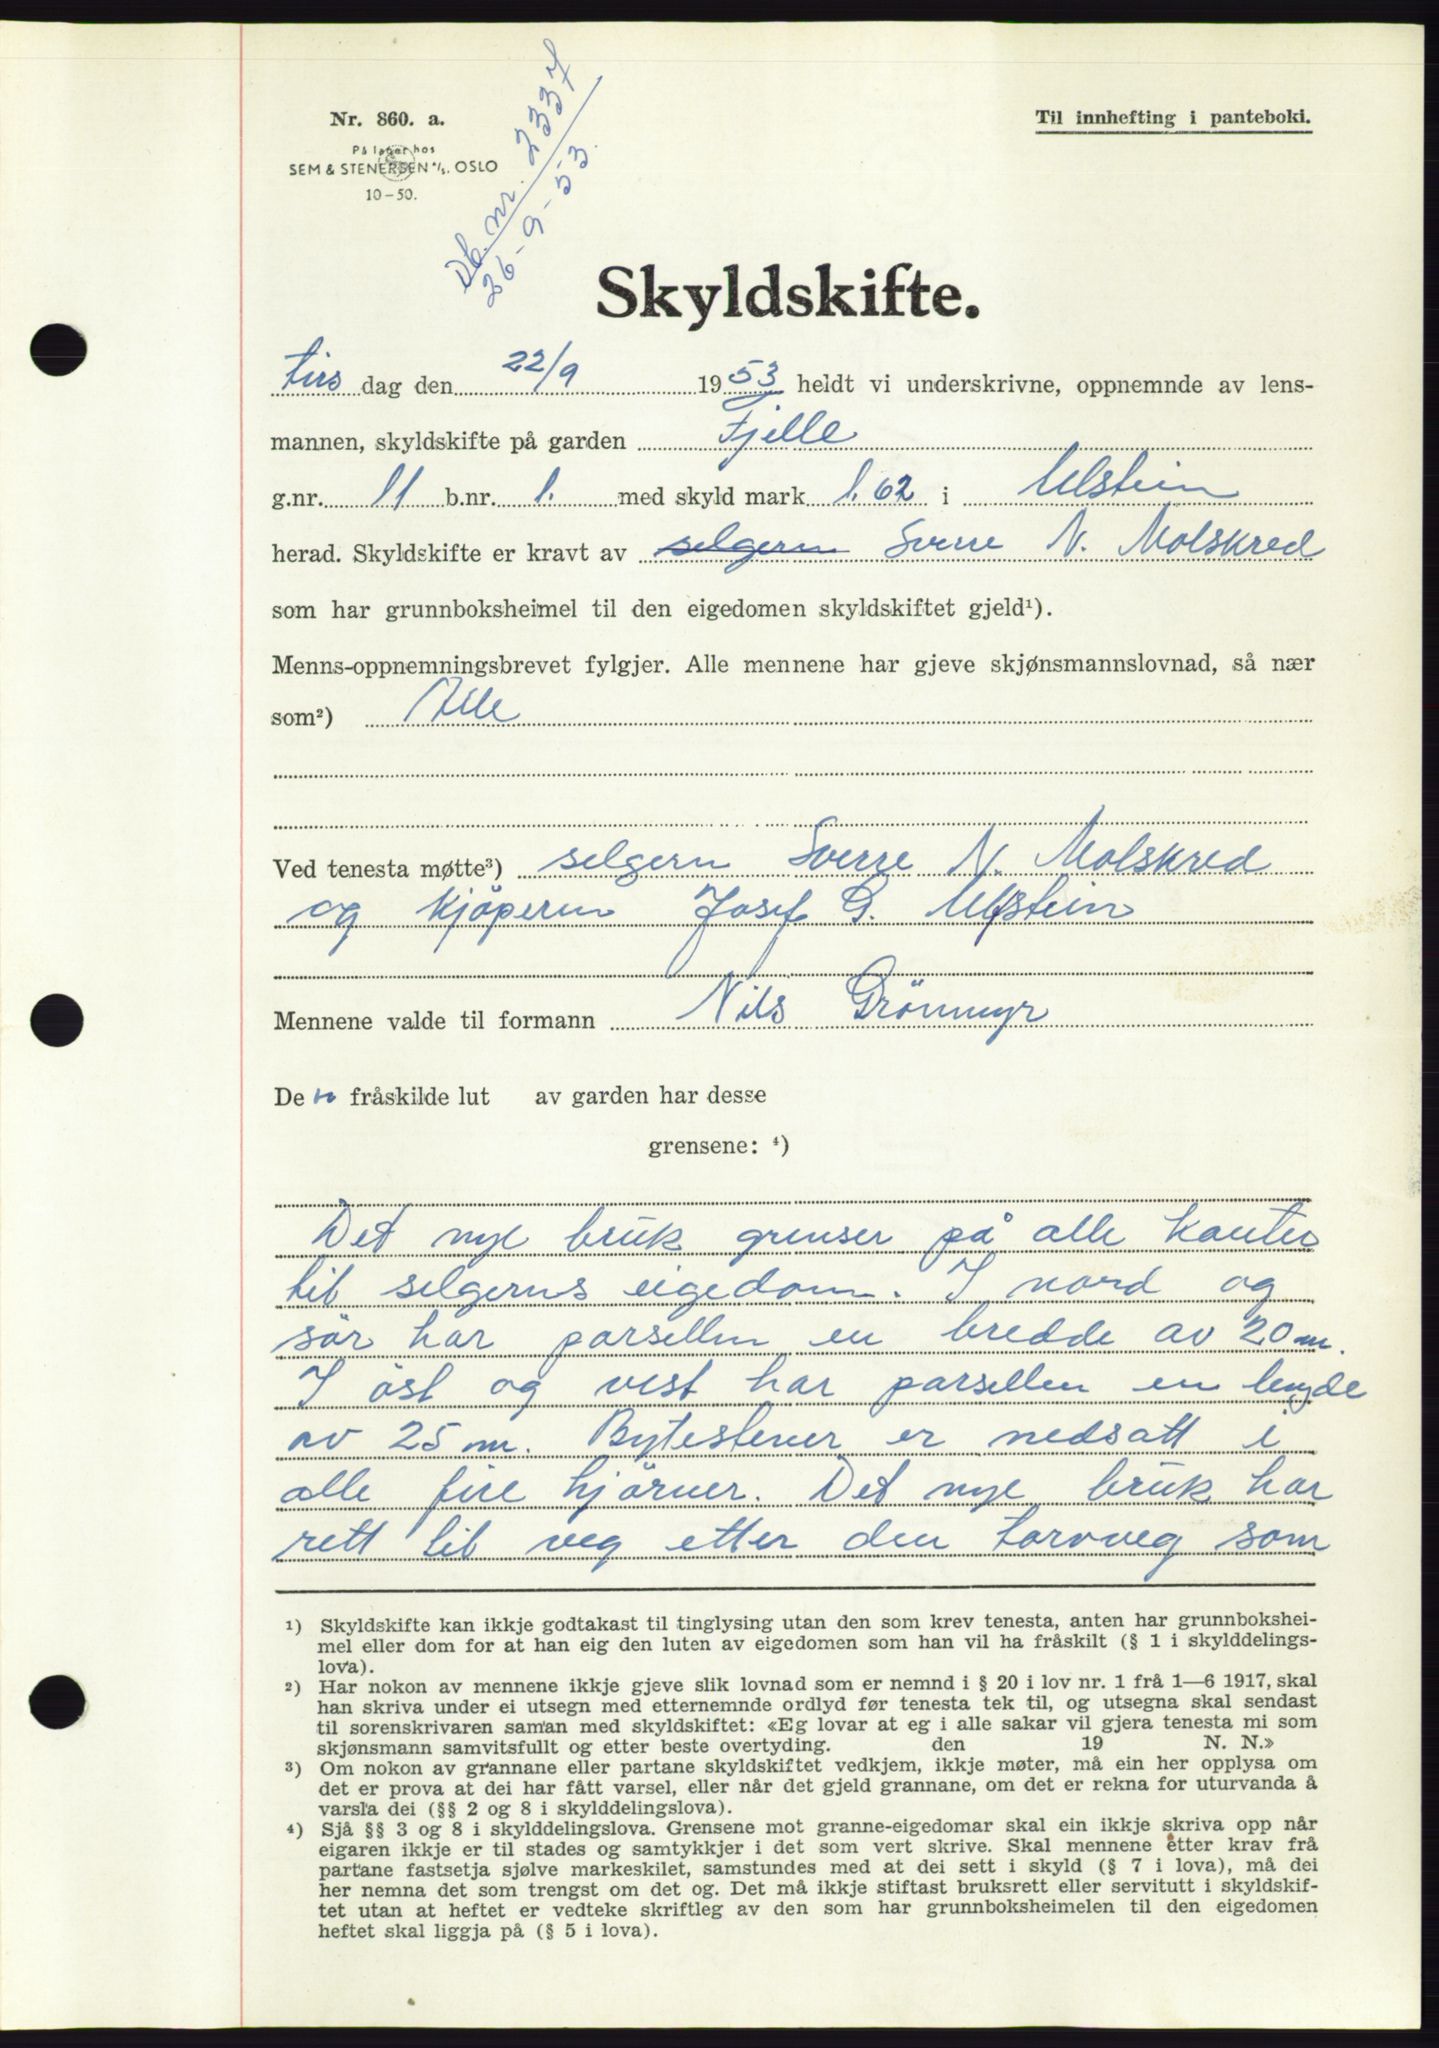 Nr. 860. a.
På lager hos
SEM & STENERSEN A/S. OSLO
10-50.
Db. nr. 2337
26-9-53.
Til innhefting i panteboki.
Skyldskifte.
tirs dag den 22/9 1953 heldt vi underskrivne, oppnemnde av lens-
mannen, skyldskifte på garden Fjelle
g.nr. 11 b.nr. 1. med skyld mark 1.62 i Ulstein
herad. Skyldskifte er kravt av selgeren Sverre N. Molskred
som har grunnboksheimel til den eigedomen skyldskiftet gjeld¹).
Menns-oppnemningsbrevet fylgjer. Alle mennene har gjeve skjønsmannslovnad, så nær
som²) Alle
Ved tenesta møtte³) selgern Sverre N. Molskred
og kjöperen Josef G. Ulstein
Mennene valde til formann Nils Grönmyr
De n fråskilde lut av garden har desse
grensene: ⁴)
Det nye bruk grenser på alle kanter
til selgerns eigedom. I nord og
sör har parsellen en bredde av 20 m.
I öst og vest har parsellen en lengde
av 25 m. Bytestener er nedsatt i
alle fire hjörner. Det nye bruk har
rett til veg etter den torvveg som
¹) Skyldskifte kan ikkje godtakast til tinglysing utan den som krev tenesta, anten har grunnbokshei-
mel eller dom for at han eig den luten av eigedomen som han vil ha fråskilt (§ 1 i skylddelings-
lova).
²) Har nokon av mennene ikkje gjeve slik lovnad som er nemnd i § 20 i lov nr. 1 frå 1—6 1917, skal
han skriva under ei utsegn med etternemnde ordlyd før tenesta tek til, og utsegna skal sendast
til sorenskrivaren saman med skyldskiftet: «Eg lovar at eg i alle sakar vil gjera tenesta mi som
skjønsmann samvitsfullt og etter beste overtyding. den 19 N. N.»
³) Om nokon av grannane eller partane skyldskiftet vedkjem, ikkje møter, må ein her opplysa om
det er prova at dei har fått varsel, eller når det gjeld grannane, om det er rekna for uturvanda å
varsla dei (§§ 2 og 8 i skylddelingslova).
⁴) Sjå §§ 3 og 8 i skylddelingslova. Grensene mot granne-eigedomar skal ein ikkje skriva opp når
eigaren ikkje er til stades og samtykkjer i det som vert skrive. Skal mennene etter krav frå
partane fastsetja sjølve markeskilet, samstundes med at dei sett i skyld (§ 7 i lova), må dei
her nemna det som trengst om det og. Det må ikkje stiftast bruksrett eller servitutt i skyldskif-
tet utan at heftet er vedteke skriftleg av den som har grunnboksheimelen til den eigedomen
heftet skal liggja på (§ 5 i lova).